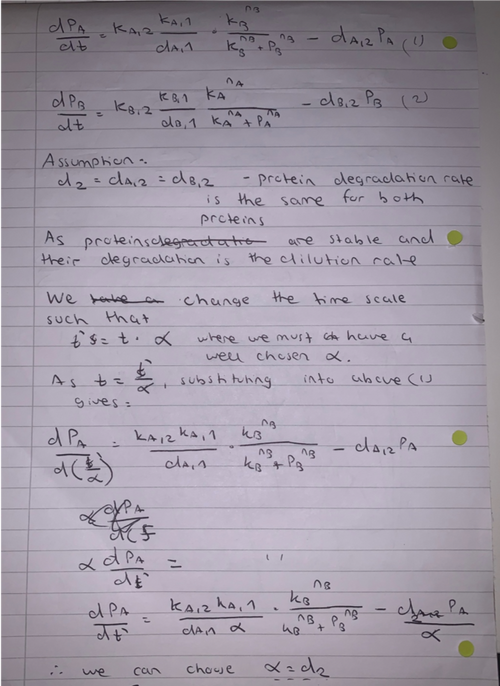 dP_A/dt = k_A,2 k_A,1/d_A,1 · k_B^n_B/(k_B^n_B + P_B^n_B) − d_A,2 P_A (1)
dP_B/dt = k_B,2 k_B,1/d_B,1 k_A^n_A/(k_A^n_A + P_A^n_A) − d_B,2 P_B (2)
Assumption:
d_2 = d_A,2 = d_B,2 - protein degradation rate
is the same for both
proteins
As proteins are stable and
their degradation is the dilution rate
We change the time scale
such that
t` = t · α where we must have a
well chosen α.
As t = t`/α, substituting into above (1)
gives:
dP_A/d(t`/α) = k_A,2 k_A,1/d_A,1 · k_B^n_B/(k_B^n_B + P_B^n_B) − d_A,2 P_A
α dP_A/dt` = ''
dP_A/dt` = k_A,2 k_A,1/d_A,1 α · k_B^n_B/(k_B^n_B + P_B^n_B) − P_A/α
∴ we can choose α = d_2